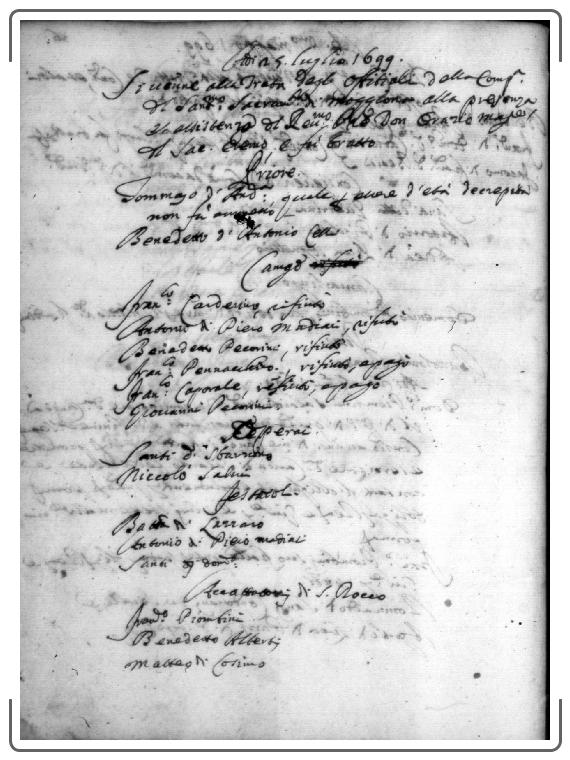 Adi 25. luglio 1699.
Si venne alla Tratta degli Offitiali della Comp.
di San.mo Sacram.to di Moggiona alla presenza
et assistenza del Rev.mo Don Orazio
di Sac. Eremo, e fu tratto
Priore.
Tommaso d' And.a, quale p essere d'età decrepita
non fu ammesso
Benedetto d' Antonio
Camg.o
Fran.co Carderini, rifiutò
Antonio di Piero Madiai, rifiutò
Benedetto Pecorini, rifiutò
Fran.co Pennacchio, rifiutò, e pagò
Fran.co Caporale, rifiutò, e pagò
Giovanni Pecorini
Santi di
Niccolò Salvi
Festaioli.
Batta di Lazzaro
Antonio di Piero Madiai
Santi di Dom.co
Accattatori di S. Rocco
Fran.co Piombini
Benedetto Alberti
Matteo di Cosimo